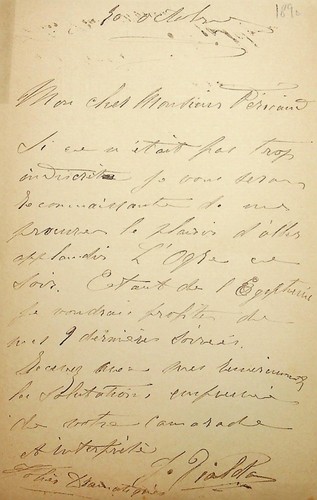 30 octobre
189
Mon cher Monsieur Péricaud
Si ce n'était pas trop
indiscrète je vous serais
reconnaissante de me
procurer le plaisir d'aller
applaudir L'Ogre ce
soir. Etant de l'Egyptienne
je voudrais profiter de
mes 9 dernières soirées.
Recevez avec mes remerciements
les salutations
de votre camarade
et interprète
Folies Dramatiques